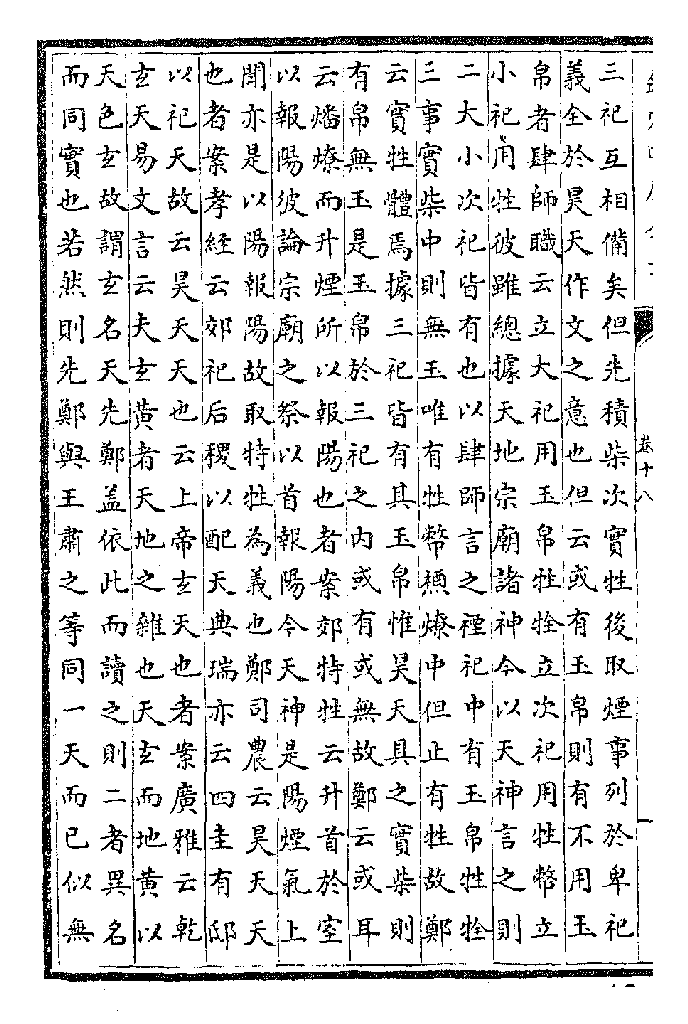 卷十八
三祀互相備矣但先積柴次實牲後取煙事列於卑祀
義全於昊天作文之意也但云或有玉帛則有不用玉
帛者肆師職云立大祀用玉帛牲牷立次祀用牲幣立
小祀用牲彼雖總據天地宗廟諸神今以天神言之則
二大小次祀皆有也以肆師言之禋祀中有玉帛牲牷
三事實柴中則無玉唯有牲幣槱燎中但止有牲故鄭
云實牲體焉據三祀皆有其玉帛惟昊天具之實柴則
有帛無玉是玉帛於三祀之内或有或無故鄭云或耳
云燔燎而升煙所以報陽也者案郊特牲云升首於室
以報陽彼論宗廟之祭以首報陽今天神是陽煙氣上
聞亦是以陽報陽故取特牲為義也鄭司農云昊天天
也者案孝經云郊祀后稷以配天典瑞亦云四圭有邸
以祀天故云昊天天也云上帝玄天也者案廣雅云乾
玄天易文言云夫玄黃者天地之雜也天玄而地黃以
天色玄故謂玄名天先鄭蓋依此而讀之則二者異名
而同實也若然則先鄭與王肅之等同一天而已似無